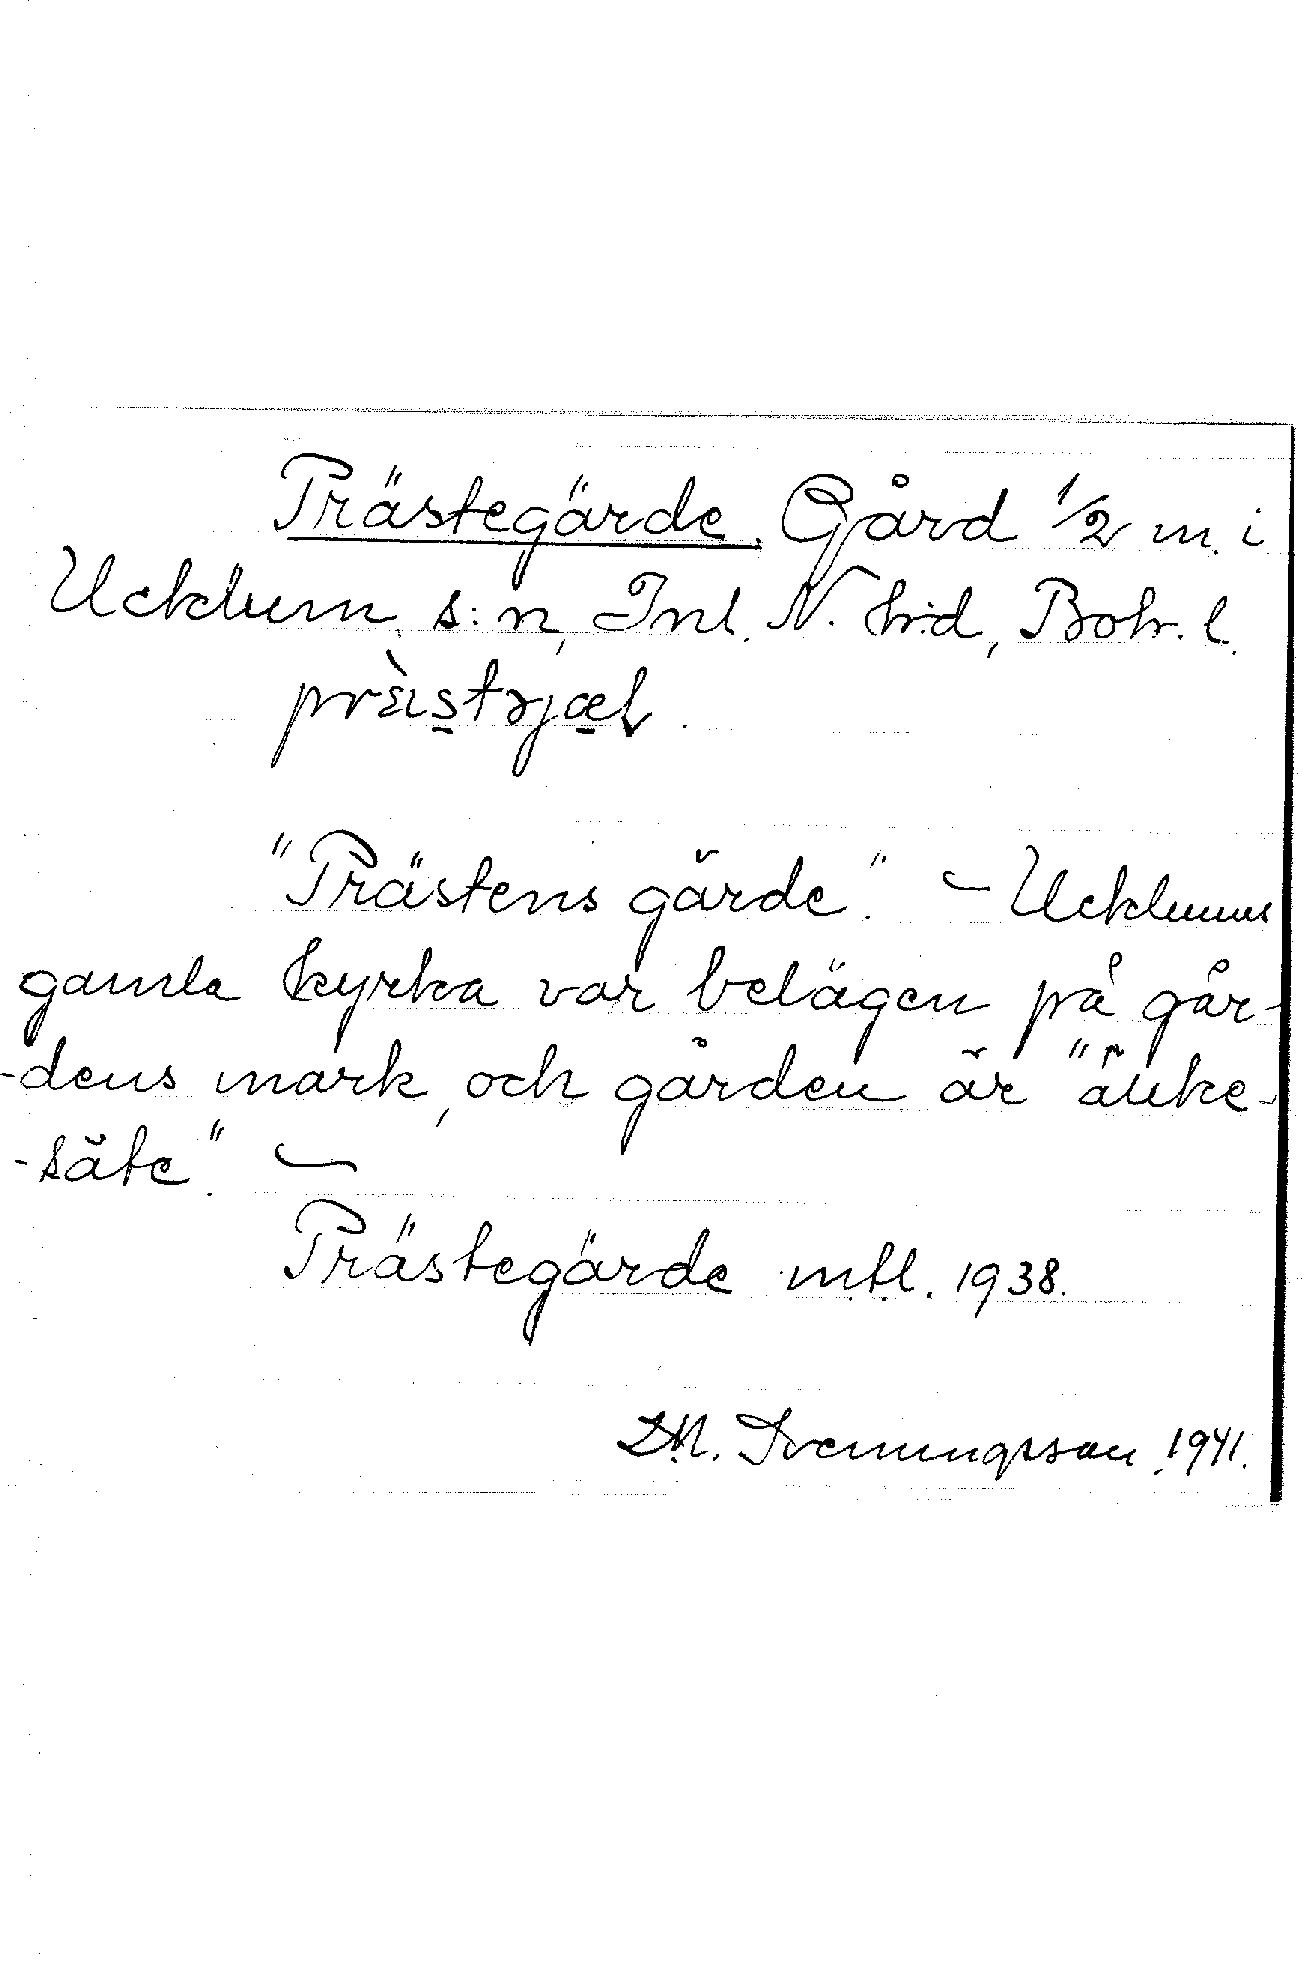 Prästegärde. Gård 1/2 m. i
Ucklum s:n, Inl. N. h:d, Boh. l.
prὲıs̠təjæ̠ɽ.
"Prästens gärde". - Ucklums
gamla kyrka var belägen på går-
-dens mark, och gården är "änke-
-säte". -
Prästegärde mtl. 1938.
Svenningsson 1941.